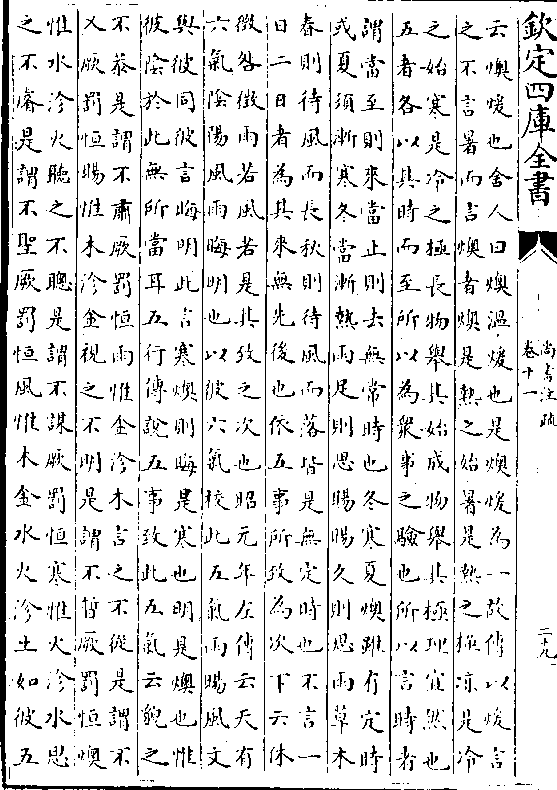 欽定四庫全書
尚書注疏
卷十一
二十九
云燠煖也舍人曰燠溫煖也是燠煖為一故傳以煖言
之不言暑而言燠者燠是熱之始暑是熱之極涼是冷
之始寒是冷之極長物舉其始成物舉其極理宜然也
五者各以其時而至所以為衆事之驗也所以言時者
謂當至則來當止則去無常時也冬寒夏燠雖有定時
或夏須漸寒冬當漸熱雨足則思暘暘久則思雨草木
春則待風而長秋則待風而落皆是無定時也不言一
曰二曰者為其來無先後也依五事所致為次下云休
徵咎徵雨若風若是其致之次也昭元年左傳云天有
六氣陰陽風雨晦明也以彼六氣校此五氣雨暘風文
與彼同彼言晦明此言寒燠則晦是寒也明是燠也惟
彼陰於此無所當耳五行傳說五事致此五氣云貌之
不恭是謂不肅厥罰恒雨惟金沴木言之不從是謂不
乂厥罰恒暘惟木沴金視之不明是謂不晢厥罰恒燠
惟水沴火聽之不聰是謂不謀厥罰恒寒惟火沴水思
之不睿是謂不聖厥罰恒風惟木金水火沴土如彼五